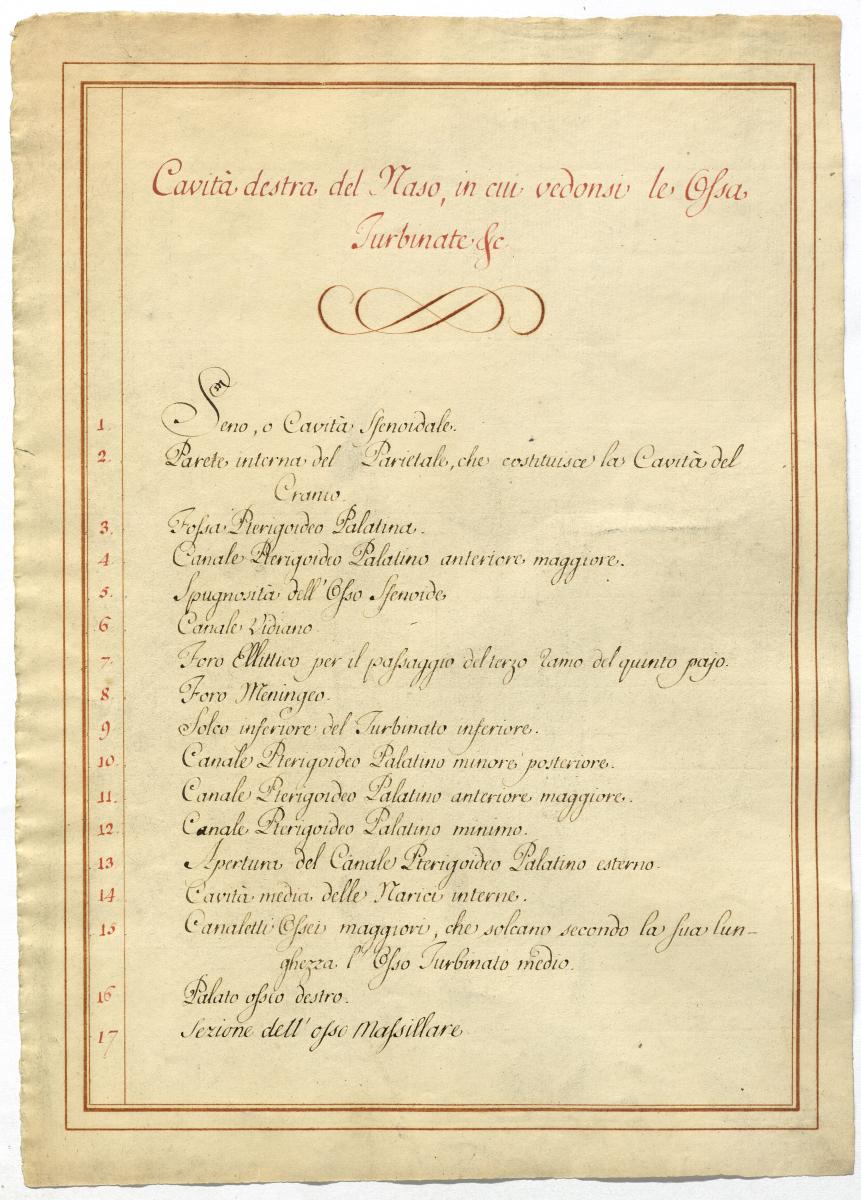 Cavità destra del Naso, in cui vedonsi le Ossa
Turbinate &c
1. Seno, o Cavità Sfenoidale.
2. Parete interna del Parietale, che costituisce la Cavità del
Cranio.
3. Fossa Pterigoideo Palatina.
4. Canale Pterigoideo Palatino anteriore maggiore.
5. Spugnosità dell'Osso Sfenoide
6. Canale Vidiano.
7. Foro Ellittico per il passaggio del terzo Ramo del quinto pajo.
8. Foro Meningeo.
9. Solco inferiore del Turbinato inferiore.
10. Canale Pterigoideo Palatino minore posteriore.
11. Canale Pterigoideo Palatino anteriore maggiore.
12. Canale Pterigoideo Palatino minimo.
13. Apertura del Canale Pterigoideo Palatino esterno.
14. Cavità media delle Narici interne.
15. Canaletti Ossei maggiori, che solcano secondo la sua lun-
ghezza l'Osso Turbinato medio.
16. Palato osseo destro.
17 Sezione dell'osso Massillare